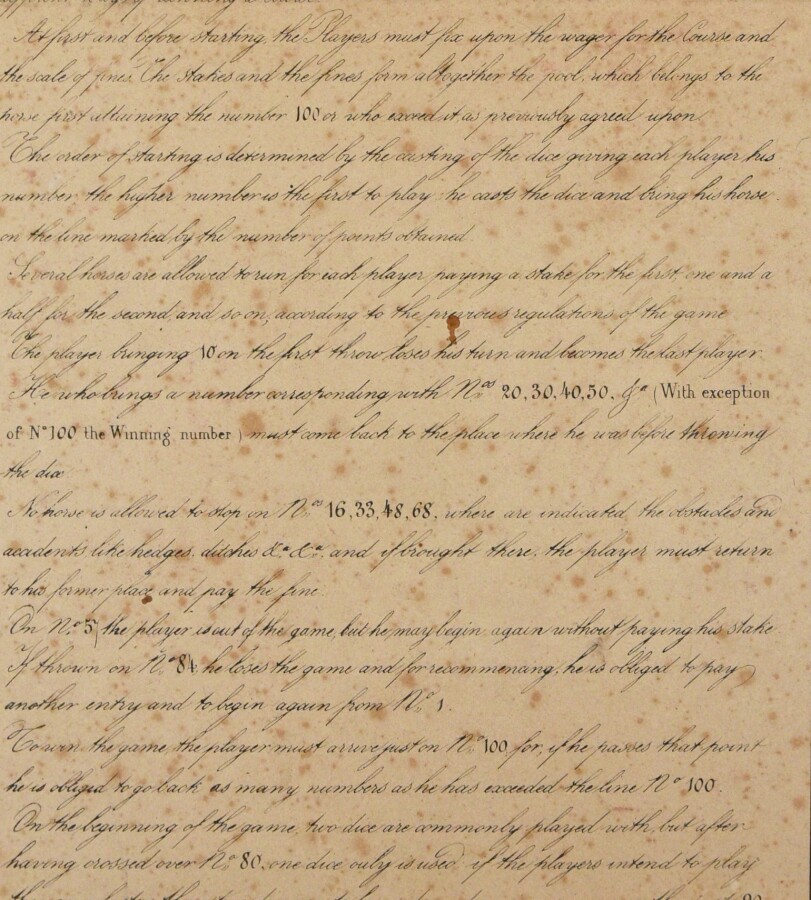 At first and before starting, the Players must fix upon the wager for the Course and
the scale of fines. The stakes and the fines form altogether the pool, which belongs to the
horse first attaining the number 100 or who exceed it as previously agreed upon
The order of starting is determined by the casting of the dice giving each player his
number; the higher number is the first to play: he casts the dice and bring his horse
on the line marked by the number of points obtained
Several horses are allowed to run for each player paying a stake for the first, one and a
half for the second, and so on, according to the previous regulations of the game
The player bringing 10 on the first throw, loses his turn and becomes the last player.
He who brings a number corresponding with Nos 20, 30, 40, 50, &a (With exception
of No 100 the Winning number) must come back to the place where he was before throwing
the dice
No horse is allowed to stop on Nos 16, 33, 48, 68, where are indicated the obstacles and
accidents like hedges, ditches &a &a, and if brought there, the player must return
to his former place and pay the fine
On No 57 the player is out of the game, but he may begin again without paying his stake
If thrown on No 84 he loses the game and for recommencing, he is obliged to pay
another entry and to begin again from No 1.
To win the game, the player must arrive just on No 100 for, if he passes that point
he is obliged to go back as many numbers as he has exceeded the line No 100.
On the beginning of the game, two dice are commonly played with, but after
having crossed over No 80, one dice only is used, if the players intend to play